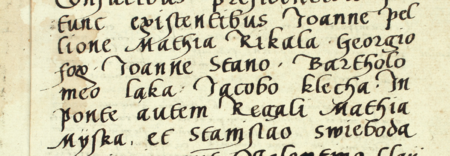 tunc existentibus Joanne pel
lione Mathia Rikala. Georgio
fox. Joanne Stano. Bartholo
meo laka. Jacobo klecha. In
ponte autem Regali Mathia
Myska. et Stanislao swieboda